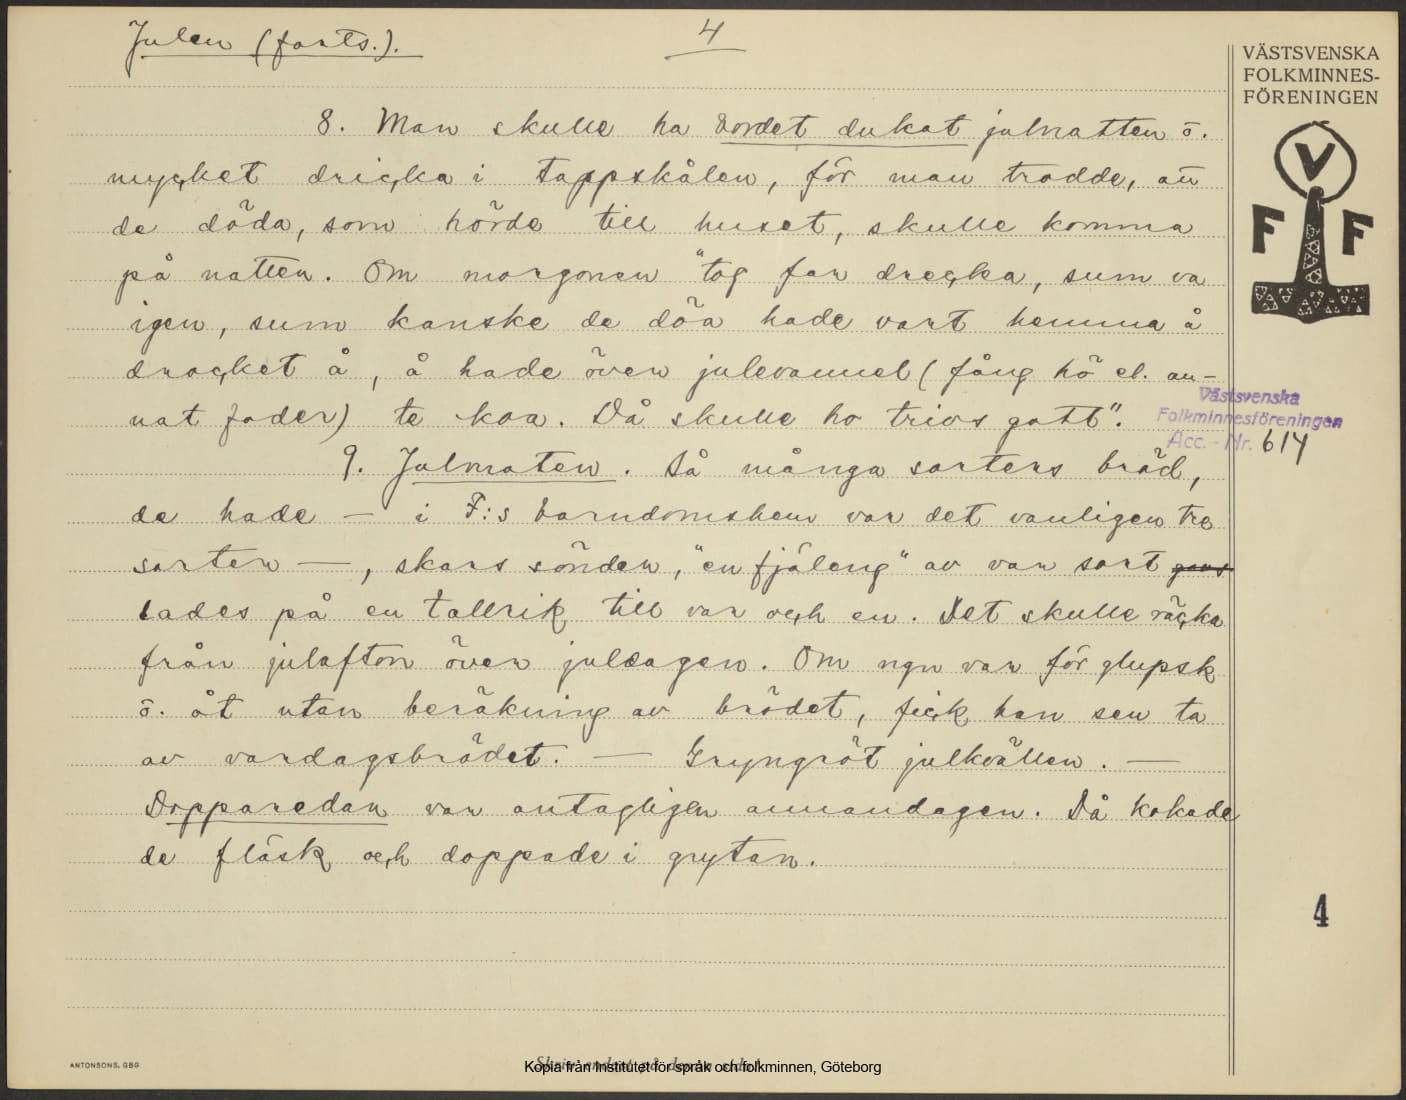 Julen (forts.).
4
VÄSTSVENSKA
FOLKMINNES-
FÖRENINGEN
V
F F
8. Man skulle ha bordet dukat julnatten o.
mycket dricka i tappskålen, för man trodde, att
de döda, som hörde till huset, skulle komma
på natten. Om morgonen "tog far drecka, sum va
igen, sum kanske de döa hade vart hemma å
dracket å, å hade över julevannel (fång hö el. an-
nat foder) te koa. Då skulle ho trivs gott".
Västsvenska
Folkminnesföreningen
Acc. - Nr. 614
9. Julmaten. Så många sorters bröd,
de hade — i F:s barndomshem var det vanligen tre
sorter —, skars sönder, "en fjäleng" av var sort
lades på en tallrik till var och en. Det skulle räcka
från julafton över juldagen. Om ngn var för glupsk
o. åt utan beräkning av brödet, fick han sen ta
av vardagsbrödet. — Gryngröt julkvällen. —
Dopparedan var antagligen annandagen. Då kokade
de fläsk och doppade i grytan.
4
ANTONSONS, GBG
Kopia från Institutet för språk och folkminnen, Göteborg